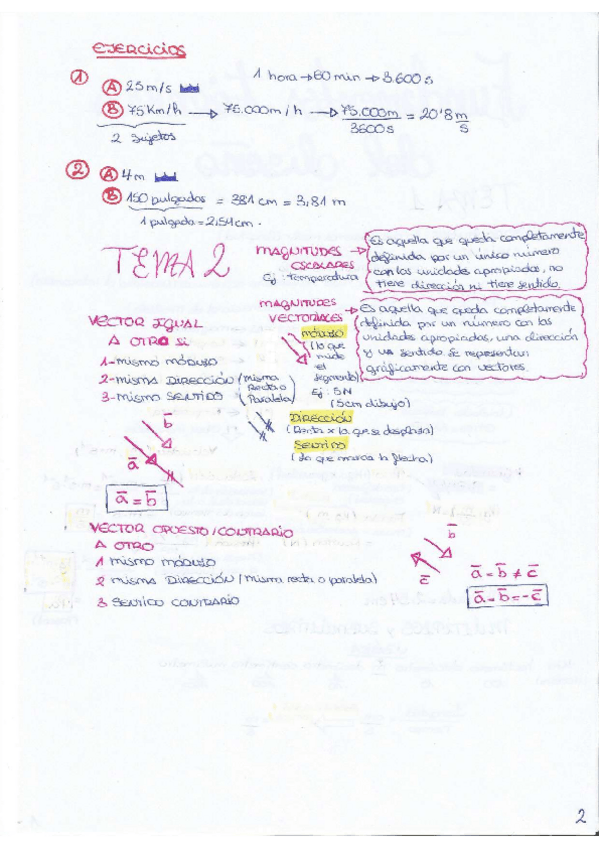 EJERCICIOS
1 A 25 m/s
1 hora → 60 min → 3600 s
B 75 Km/h → 75.000 m/h → 75.000m / 3600s = 20'8 m/s
2 sujetos
2 A 4 m
B 150 pulgadas = 381 cm = 3,81 m
1 pulgada = 2,54 cm.
TEMA 2
MAGNITUDES ESCALARES →
Ej: Temperatura
Es aquella que queda completamente
definida por un único número
con las unidades apropiadas, no
tiene dirección ni tiene sentido.
MAGNITUDES
VECTORIALES →
Es aquella que queda completamente
definida por un número con las
unidades apropiadas, una dirección
y un sentido. Se representan
gráficamente con vectores.
MÓDULO
(lo que
mide
el
segmento)
Ej: 5N
(5cm dibujo)
DIRECCIÓN
(Recta x la que se desplaza)
SENTIDO
(La que marca la flecha)
VECTOR IGUAL
A OTRO SI
1-mismo módulo
2-misma DIRECCIÓN (misma
Recta o
Paralela)
3-mismo SENTIDO
b
a
a = b
VECTOR OPUESTO/CONTRARIO
A OTRO
1 mismo MÓDULO
2 misma DIRECCIÓN (misma recta o paralela)
3 SENTIDO CONTRARIO
b
c
a = b ≠ c
a = b = -c
2